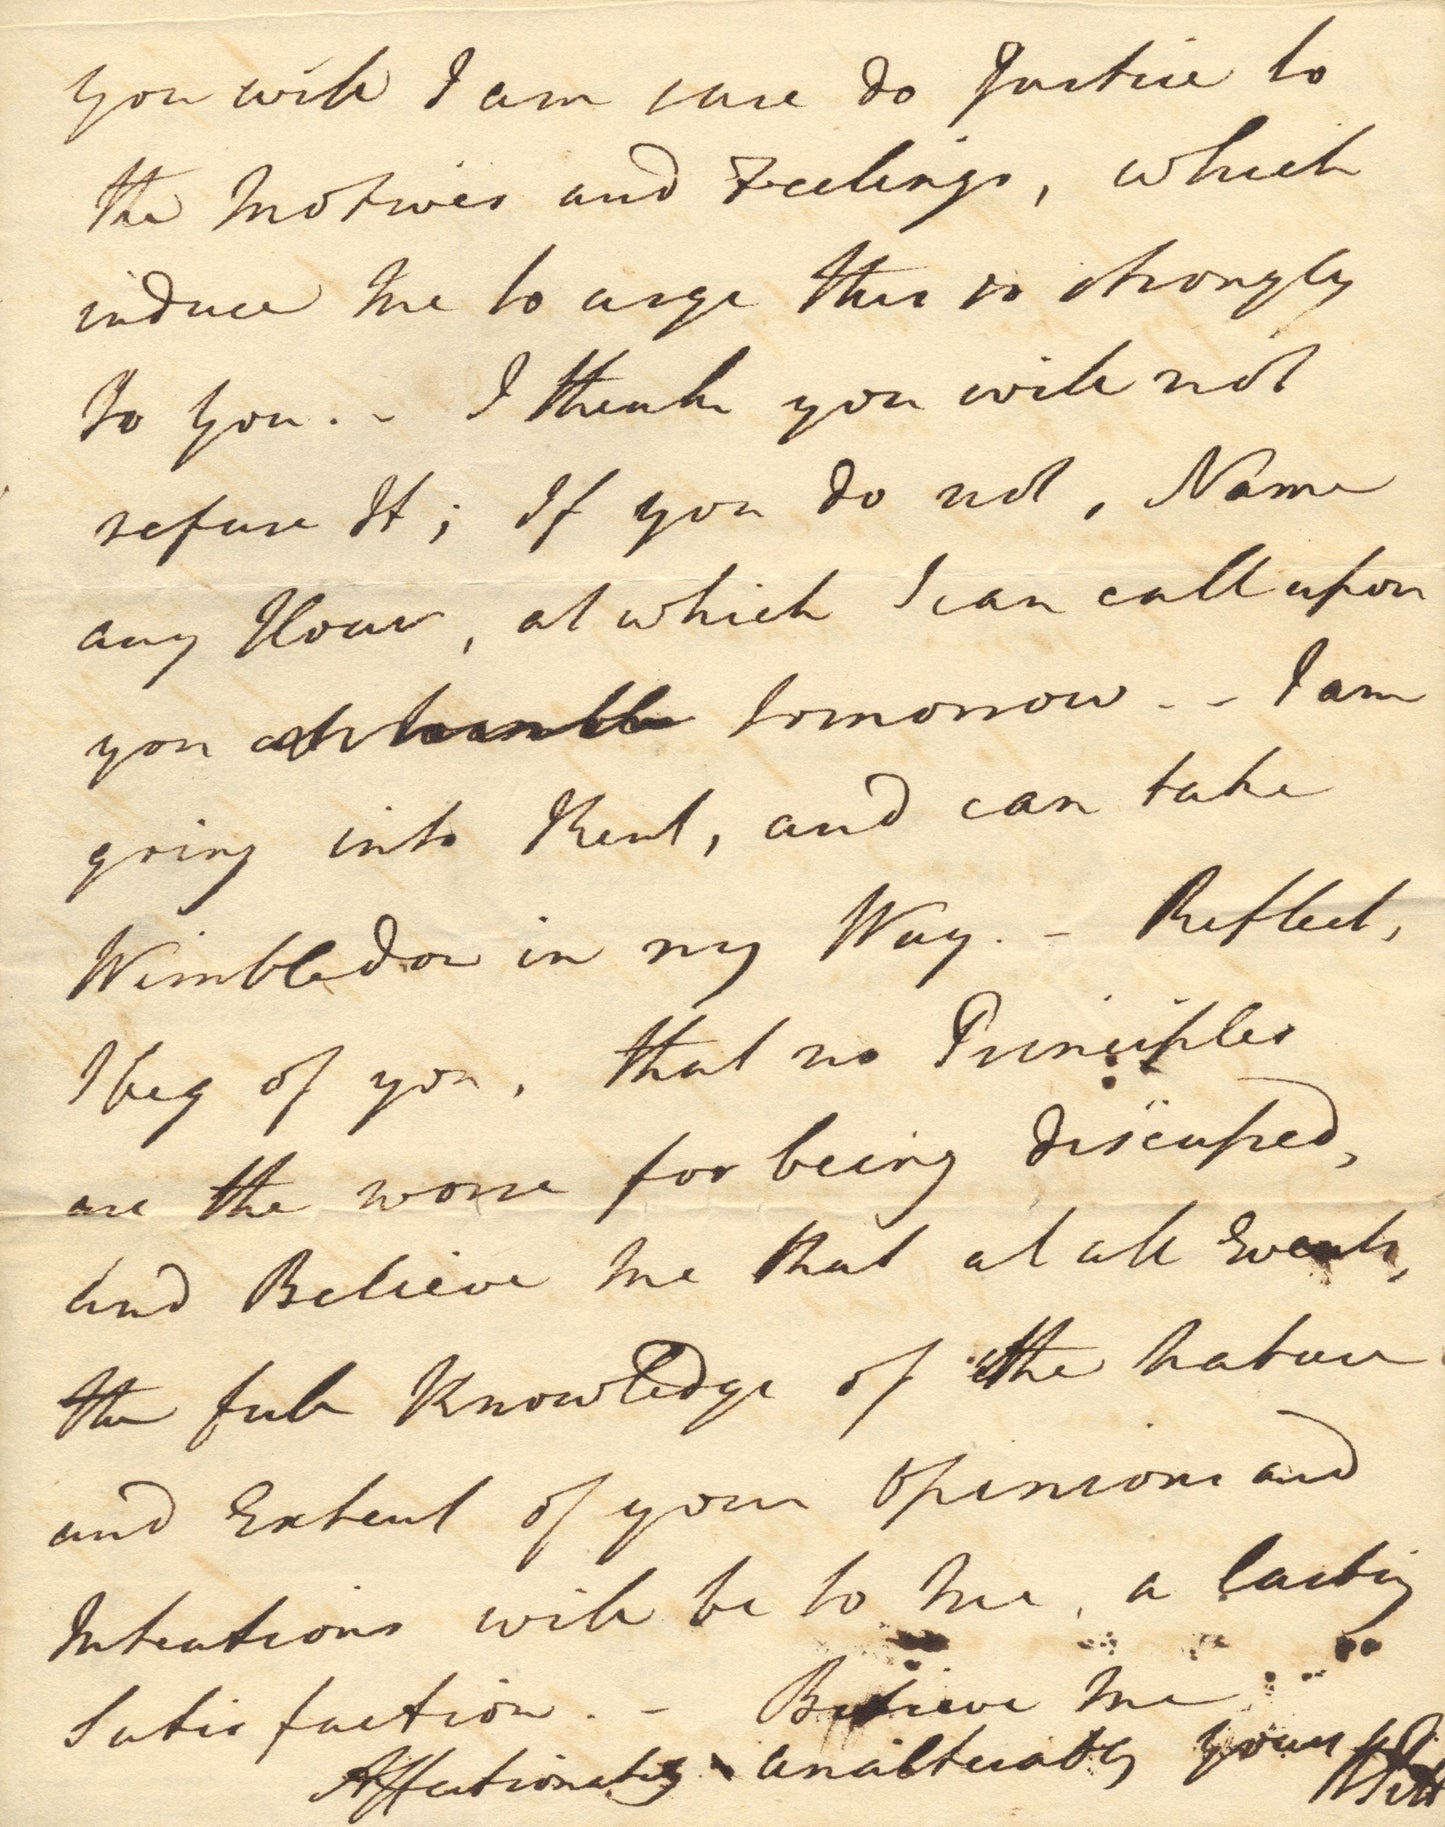 you will I am sure do Justice to
the Motives and Feelings, which
induce Me to urge this so strongly
To you. - I think you will not
refuse It; If you do not, Name
any Hour, at which I can call upon
you tomorrow. - I am
going into Kent, and can take
Wimbledon in my Way. - Reflect,
I beg of you, that no Principles
are the worse for being discussed,
and Believe Me that at all Events,
the full Knowledge of the Nature
and Extent of your opinions and
Intentions will be to Me, a lasting
Satisfaction. - Believe Me
Affectionately & unalterably yours
W Pitt